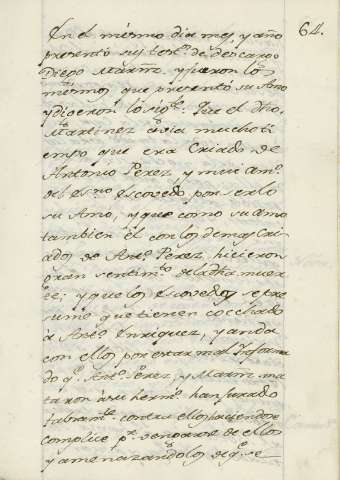 64.
En el mismo dia mes y año
presentó sus test.s de descargo
Diego Martin.z y fueron los
mesmos que presentó su Amo
y digeron lo sig.te: Que el dho
Martinez avia mucho ti
empo que era Criado de
Antonio Perez, y mui am.o
del es.no Escovedo por serlo
su Amo, y que como su amo
tambien el con los demas Cri
ados de Ant.o Perez, hicieron
gran sentim.to de la dha muer
te; y que los Escovedos se pre
sume que tienen cocechado
à Ant.o Enriquez, y anda
con ellos por estar mal Informa
do q.e Ant.o Perez, y Martin.z ma
taron à su herm.o han jurado
falsam.te contra ellos haciendose
complice p.a vengarse de ellos
y amenazandolos de q.e se